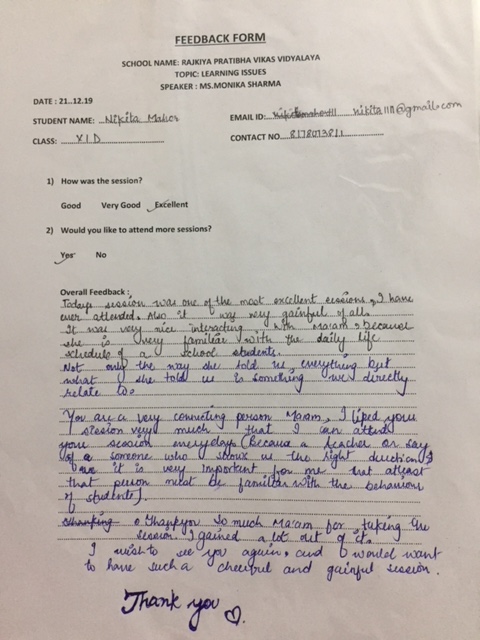 FEEDBACK FORM
SCHOOL NAME: RAJKIYA PRATIBHA VIKAS VIDYALAYA
TOPIC: LEARNING ISSUES
SPEAKER : MS.MONIKA SHARMA
DATE : 21..12.19
STUDENT NAME: Nikita Mahor
EMAIL ID: nikita1111@gmail.com
CLASS: XI D
CONTACT NO. 8178073811
1) How was the session?
Good Very Good Excellent
2) Would you like to attend more sessions?
Yes No
Overall Feedback :
Todays session was one of the most excellent sessions, I have
ever attended. Also it was very gainful of all.
It was very nice interacting with Ma'am, because
she is very familiar with the daily life
schedule of a school students.
Not only the way she told us everything but
what she told us is something we directly
relate to.
You are a very connecting person Ma'am, I liped your
session very much that I can attend
your session everyday. (Becaus a teacher or say
of a someone who shows us the right direction I
it is very important for me that atleast
that person must be familiar with the behaviour
of students).
Thankyou so much Ma'am for taking the
session. I gained a lot out of it.
I wish to see you again, and I would want
to have such a cheerful and gainful session.
Thank you